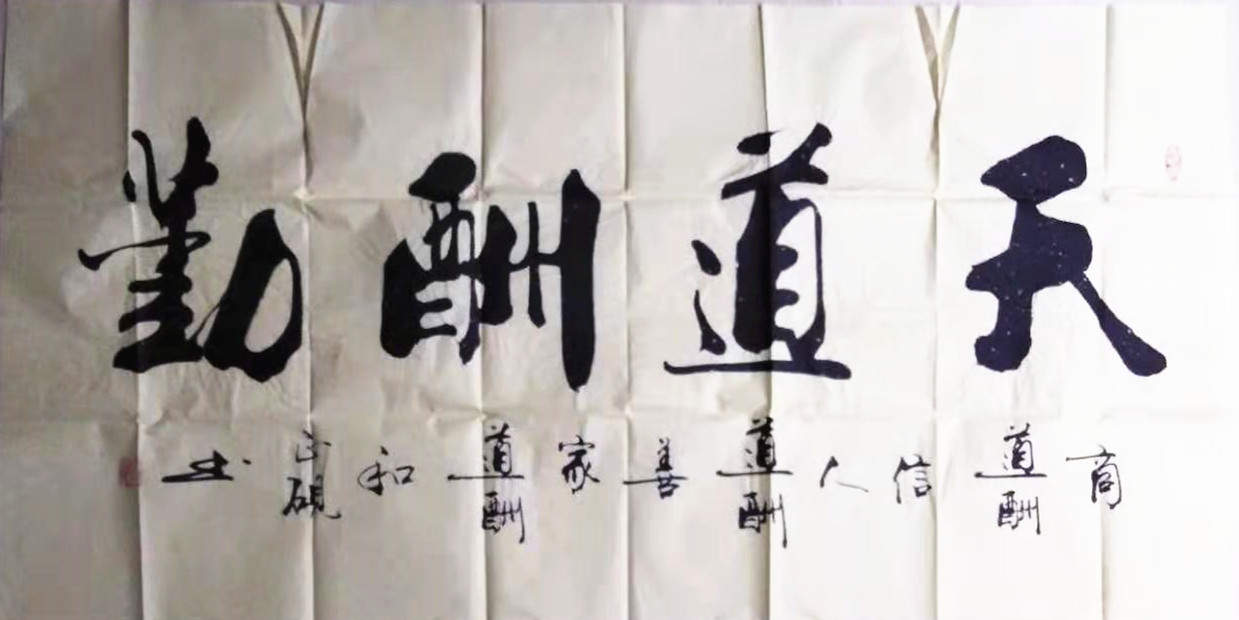 天道酬勤
商道酬信人道酬善家道酬和
砚书